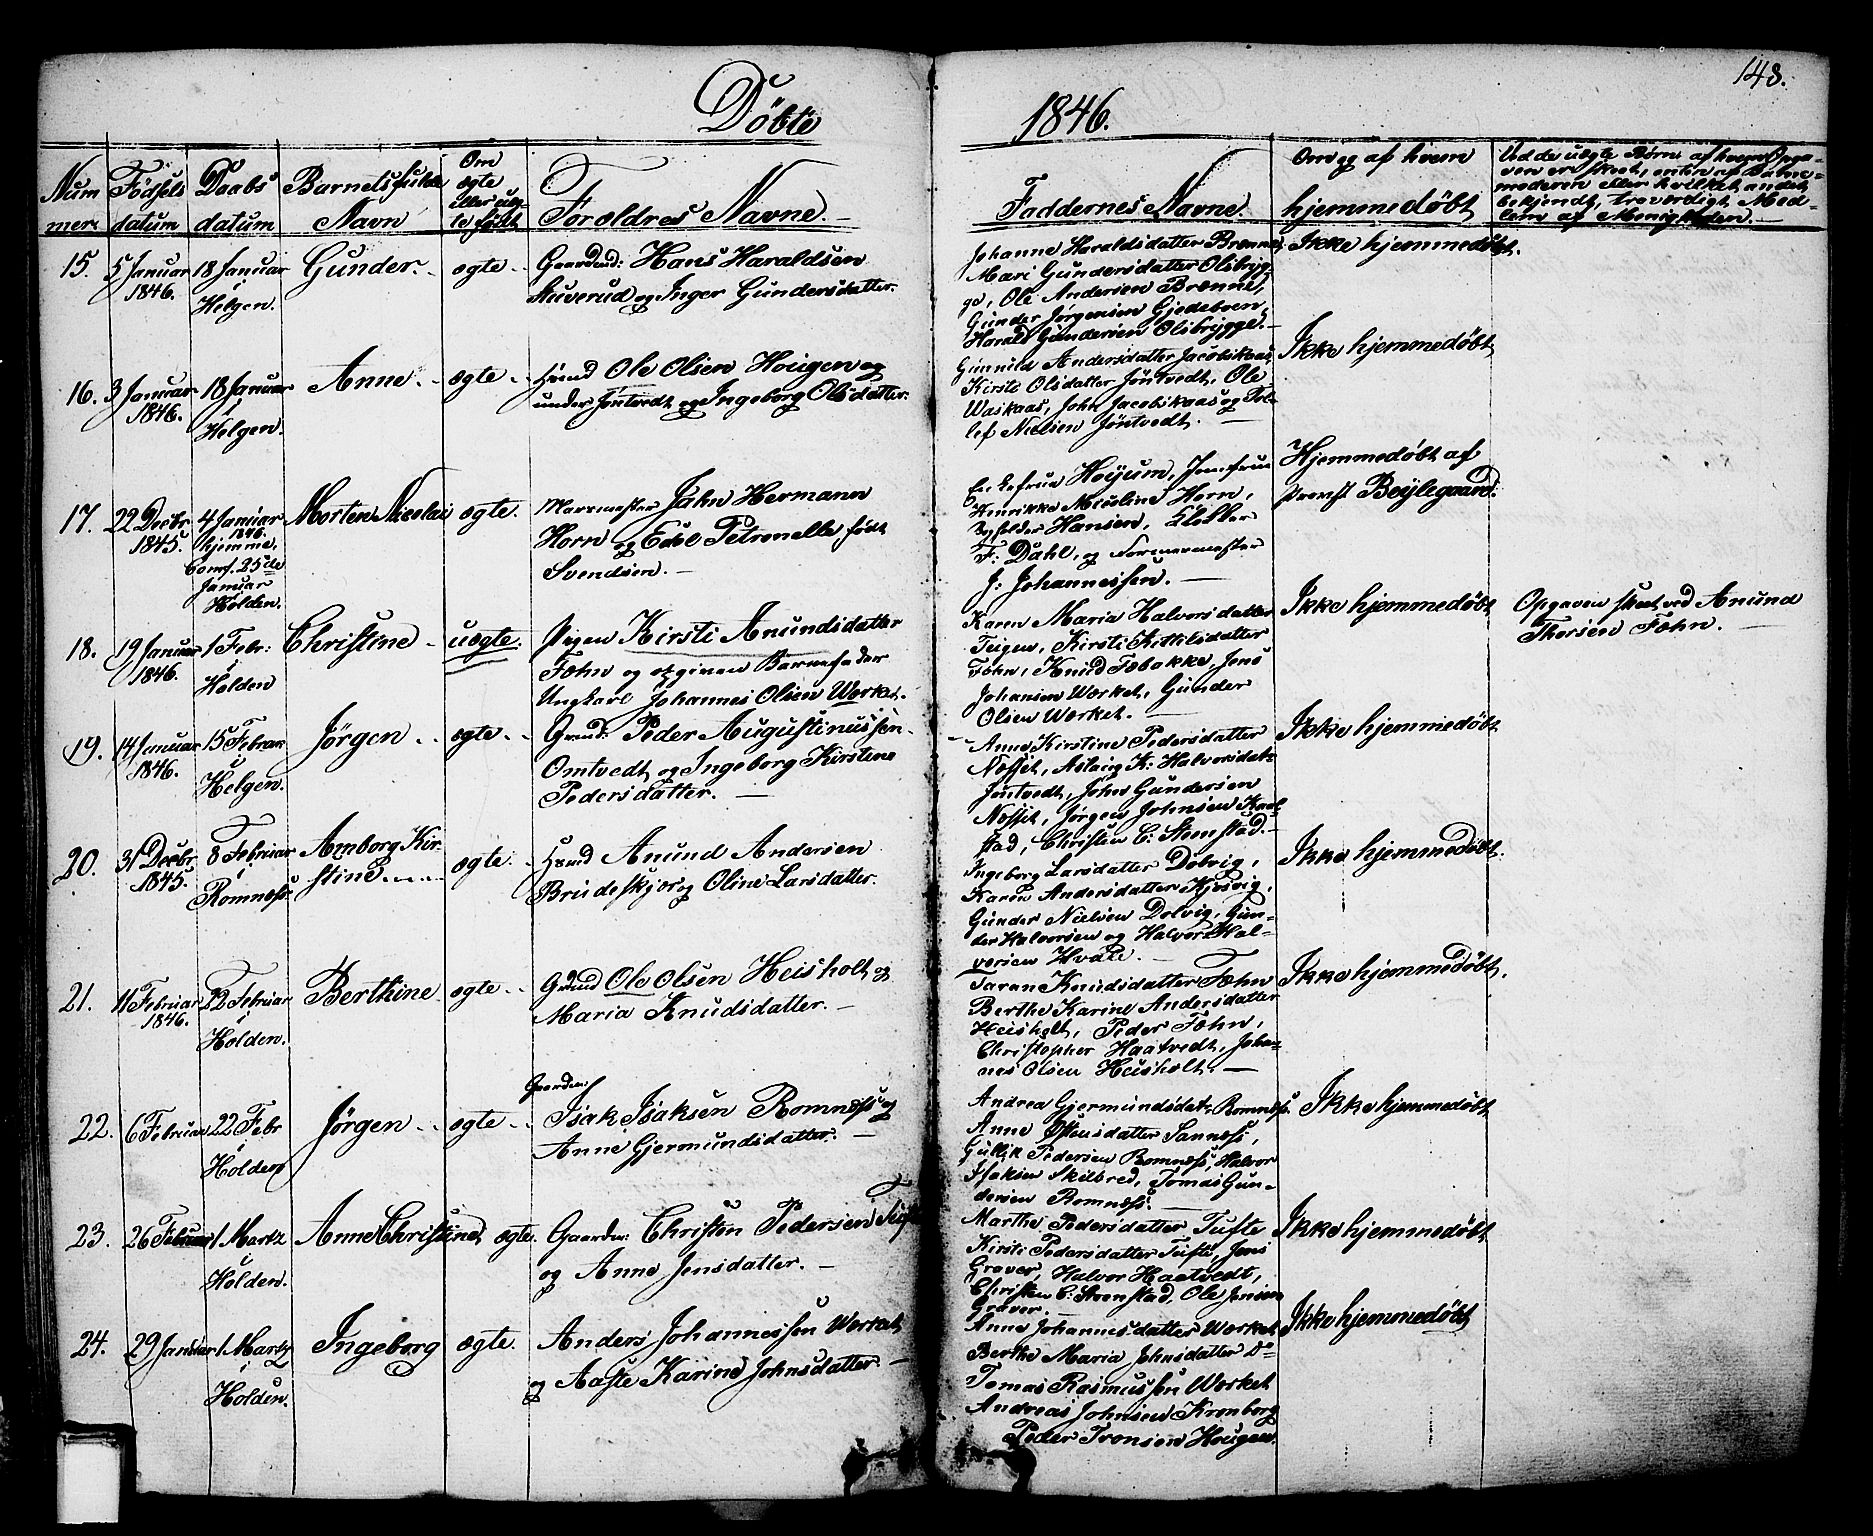 148.
Döbte 1846.
Num
mer.
Födsels
datum
Daabs
datum
Barnets fulde
Navn
Om
ægte
eller uæg-
te födt
Forældres Navne.
Faddernes Navne.
Om og af hvem
hjemmedöbt
Ved de uægte Börn, af hvem Opga-
ven er skeet, enten af Barne-
moderen eller hvilket andet
bekjendt, troværdigt Med-
lem af Menigheden.
15. 5 Januar
1846.
18 Januar
i
Helgen.
Gunder. ægte
Gaardmd: Hans Haraldsen
Stuverud og Inger Gundersdatter.
Johanne Haraldsdatter Brenne,
Mari Gundersdatter Olsbryg-
ge, Ole Andersen Brenne,
Gunder Jörgensen Gjedeboen,
Harald Gundersen Olsbrygge.
Ikke hjemmedöbt.
16. 3 Januar
1846.
18 Januar
i
Helgen.
Anne ægte
Huusmd Ole Olsen Hougen og
under Jöntvedt og Ingeborg Olsdatter.
Gunnild Andersdatter Jacobskaas,
Kirsti Olsdatter Jöntvedt, Ole
Waskaas, John Jacobskaas og Tol-
lef Nielsen Jöntvedt.
Ikke hjemmedöbt
17. 22 Decbr
1845.
4 Januar
1846.
hjemme,
Comf. 25de
Januar
Holden.
Morten Nicolai ægte.
Marsmester John Hermann
Horn og Edel Petronelle födt
Svendsen.
Enkefrue Höyum, Jomfrue
Henrikke Nicoline Horn,
Bygfolder Hansen, Klokker
F. Dahl, og Formermester
J. Johannessen.
Hjemmedöbt af
Provst Beylegaard.
18. 19 Januar
1846.
1 Febr:
i
Holden
Christine uægte.
Pigen Kirsti Anundsdatter
Fæhn og opgiven Barnefader
Ungkarl Johannes Olsen Værket.
Karen Maria Halvorsdatter
Teigen, Kirsti Kittilsdatter
Fæhn, Knud Fæbakke, Jens
Johansen Værket, Gunder
Olsen Værket.
Ikke hjemmedöbt
Opgaven skeet ved Anund
Thorsen Fæhn.
19. 14 Januar
1846.
15 Februar
i
Helgen.
Jörgen ægte
Grmd: Peder Augustinussen
Omtvedt og Ingeborg Kirstine
Pedersdatter.
Anne Kirstine Pedersdatter
Næsset, Aslaug K: Halvorsdat:
Jöntvedt, John Gundersen
Næsset, Jörgen Johnsen Kaal-
stad, Christen C: Steenstad.
Ikke hjemmedöbt
20. 31 Decbr
1845.
8 Februar
i
Romnæss
Amborg Kir-
stine ægte.
Husmd Anund Andersen
Brudeskjor og Oline Larsdatter.
Ingeborg Larsdatter Dolvig,
Karen Andersdatter Kjosvig,
Gunder Nielsen Dolvig, Gun-
der Halvorsen og Halvor Hal-
vorsen Hvaale.
Ikke hjemmedöbt.
21. 11 Februar
1846.
22 Februar
i
Holden.
Berthine ægte
Grmd Ole Olsen Heisholt og
Maria Knudsdatter.
Taran Knudsdatter Fæhn
Berthe Karine Andersdatter
Heisholt, Peder Fæhn,
Christopher Haatvedt, Johan-
nes Olsen Heisholt.
Ikke hjemmedöbt.
22. 6 Februar
22 Febr
i
Holden
Jörgen ægte
Gaardm:
Isak Isaksen Romnæss og
Anne Gjermundsdatter.
Andrea Gjermundsdat: Romnæss.
Anne Östensdatter Sannæss,
Gullik Pedersen Romnæss, Halvor
Isaksen Skilbred, Tomas Gun-
dersen Romnæss.
Ikke hjemmedöbt
23. 26 Februar
1 Martz
i
Holden.
Anne Christine ægte.
Gaardm: Christen Pedersen Tufte
og Anne Jensdatter.
Marthe Pedersdatter Tufte
Kirsti Pedersdatter Tufte, Jens
Graver, Halvor Haatvedt,
Christen C: Steenstad, Ole Jensen
Graver.
Ikke hjemmedöbt
24. 29 Januar
1. Martz
i
Holden.
Ingeborg ægte.
Anders Johannessen Værket
og Aaste Karine Johnsdatter.
Anne Johannesdatter Værket
Berthe Maria Johnsdatter Do
Tomas Rasmussen Værket
Andreas Johnsen Kronborg
Peder Tronsen Hougen.
Ikke hjemmedöbt